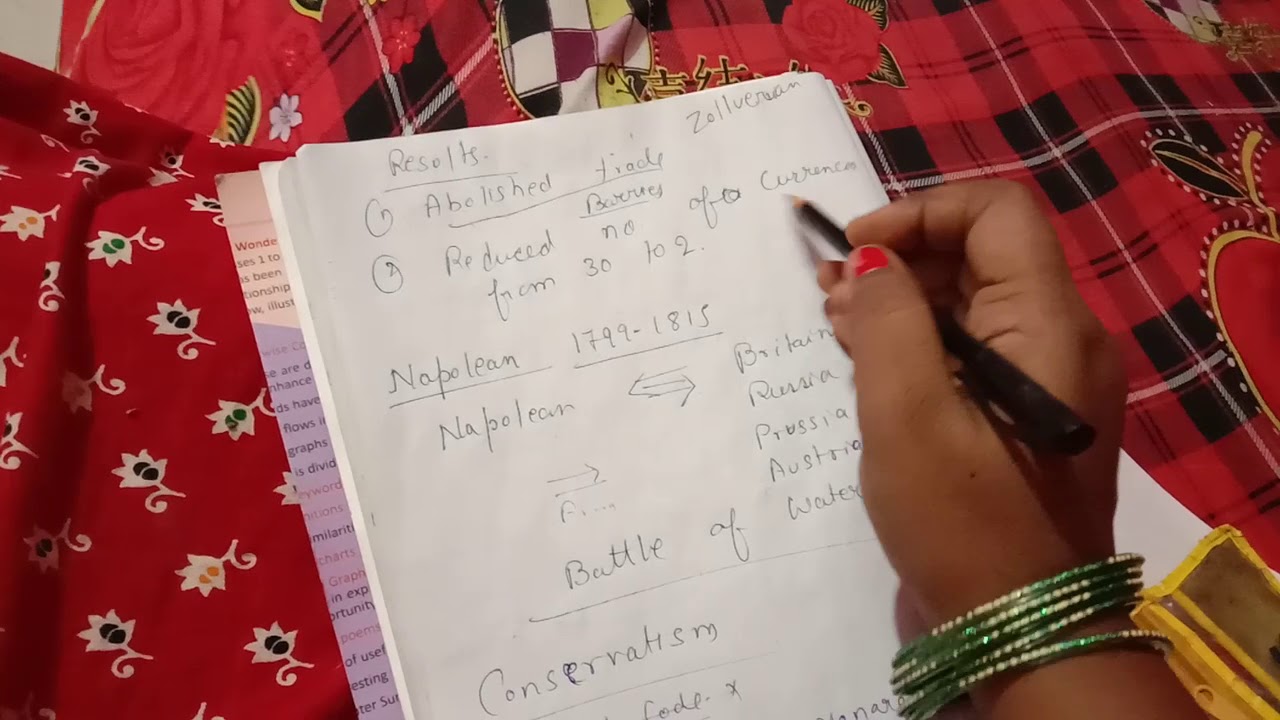 Zollverean
Results.
① Abolished trade
Barries
② Reduced no of currences
from 30 to 2.
Napolean 1799-1815
Napolean ⟺ Britain
Russia
Prussia
Austria
Battle of Water
Conservatism
Code. x
Wonde
ses 1 to
as been
tionship
ow, illust
wise Co
se are d
nhance
ds have
flows i
graphs
is divid
keyword
nitions
milariti
charts
Graph
in exp
ortunity
poems
of usef
esting
ter Sur